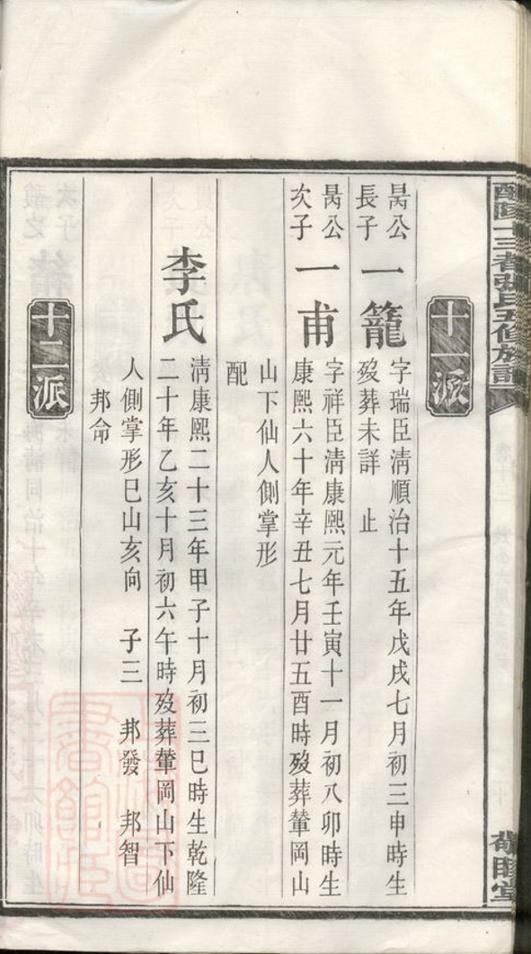 醴陵十三者張氏五修族譜
敬睦堂
十一派
昺公長子
一籠
字瑞臣清順治十五年戊戌七月初三申時生
歿葬未詳 止
昺公次子
一甫
字祥臣清康熙元年壬寅十一月初八卯時生
康熙六十年辛丑七月廿五酉時歿葬輦岡山
山下仙人側掌形
配
李氏
清康熙二十三年甲子十月初三巳時生乾隆
二十年乙亥十月初六午時歿葬輦岡山下仙
人側掌形巳山亥向 子三 邦發 邦智
邦命
十二派